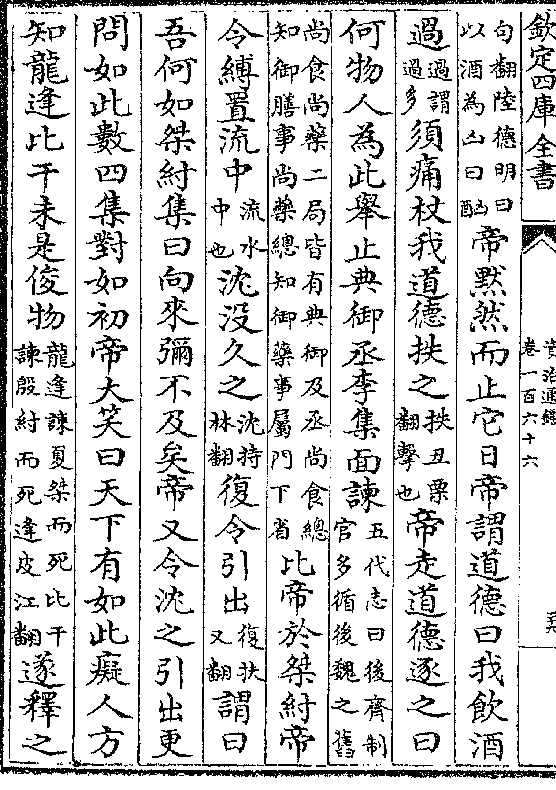 欽定四庫全書
資治通鑑
卷一百六十六
句翻陸德明曰以酒為凶曰酗帝默然而止它日帝謂道德曰我飲酒
過過謂過多須痛杖我道德抶之抶丑栗翻擊也帝走道德逐之曰
何物人為此舉止典御丞李集面諫五代志曰後齊制官多循後魏之舊
尚食尚藥二局皆有典御及丞尚食總知御膳事尚藥總知御藥事屬門下省比帝於桀紂帝
令縛置流中流水中也沈没久之沈持林翻復令引出復扶又翻謂曰
吾何如桀紂集曰向來彌不及矣帝又令沈之引出更
問如此數四集對如初帝大笑曰天下有如此癡人方
知龍逄比干未是俊物龍逄諫夏桀而死比干諫殷紂而死逄皮江翻遂釋之